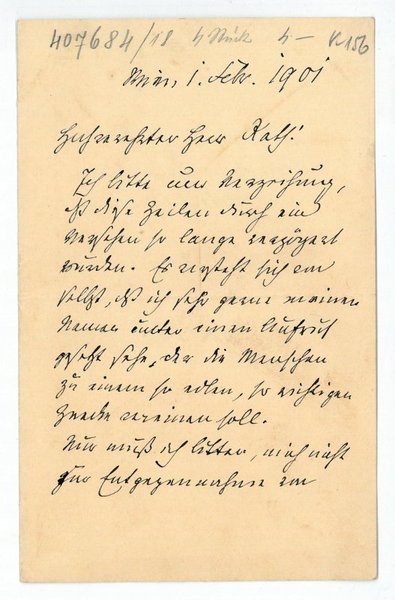 407684/18 4 Stück 4– K 156
Wien, 1. Febr. 1901
Hochverehrter Herr Rath!
Ich bitte um Verzeihung,
daß diese Zeilen durch ein
Versehen so lange verzögert
wurden. Es versteht sich von
selbst, daß ich sehr gerne meinen
Namen unter einen Aufruf
gesetzt sehe, der die Menschen
zu einem so edlen, so wichtigen
Zwecke vereinen soll.
Nur muß ich bitten, mich nicht
zur Entgegennahme von